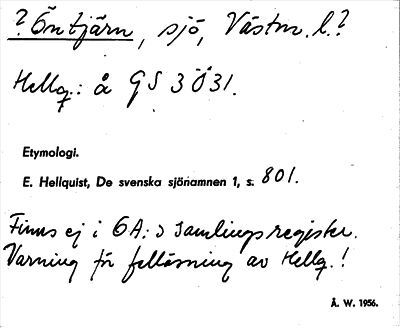 ? Öntjärn, sjö, Västm. l.?
Hellq.: å GS 3 Ö31.
Etymologi.
E. Hellquist, De svenska sjönamnen 1, s. 801.
Finns ej i OA:s samlingsregister.
Varning för felläsning av Hellq.!
Å. W. 1956.